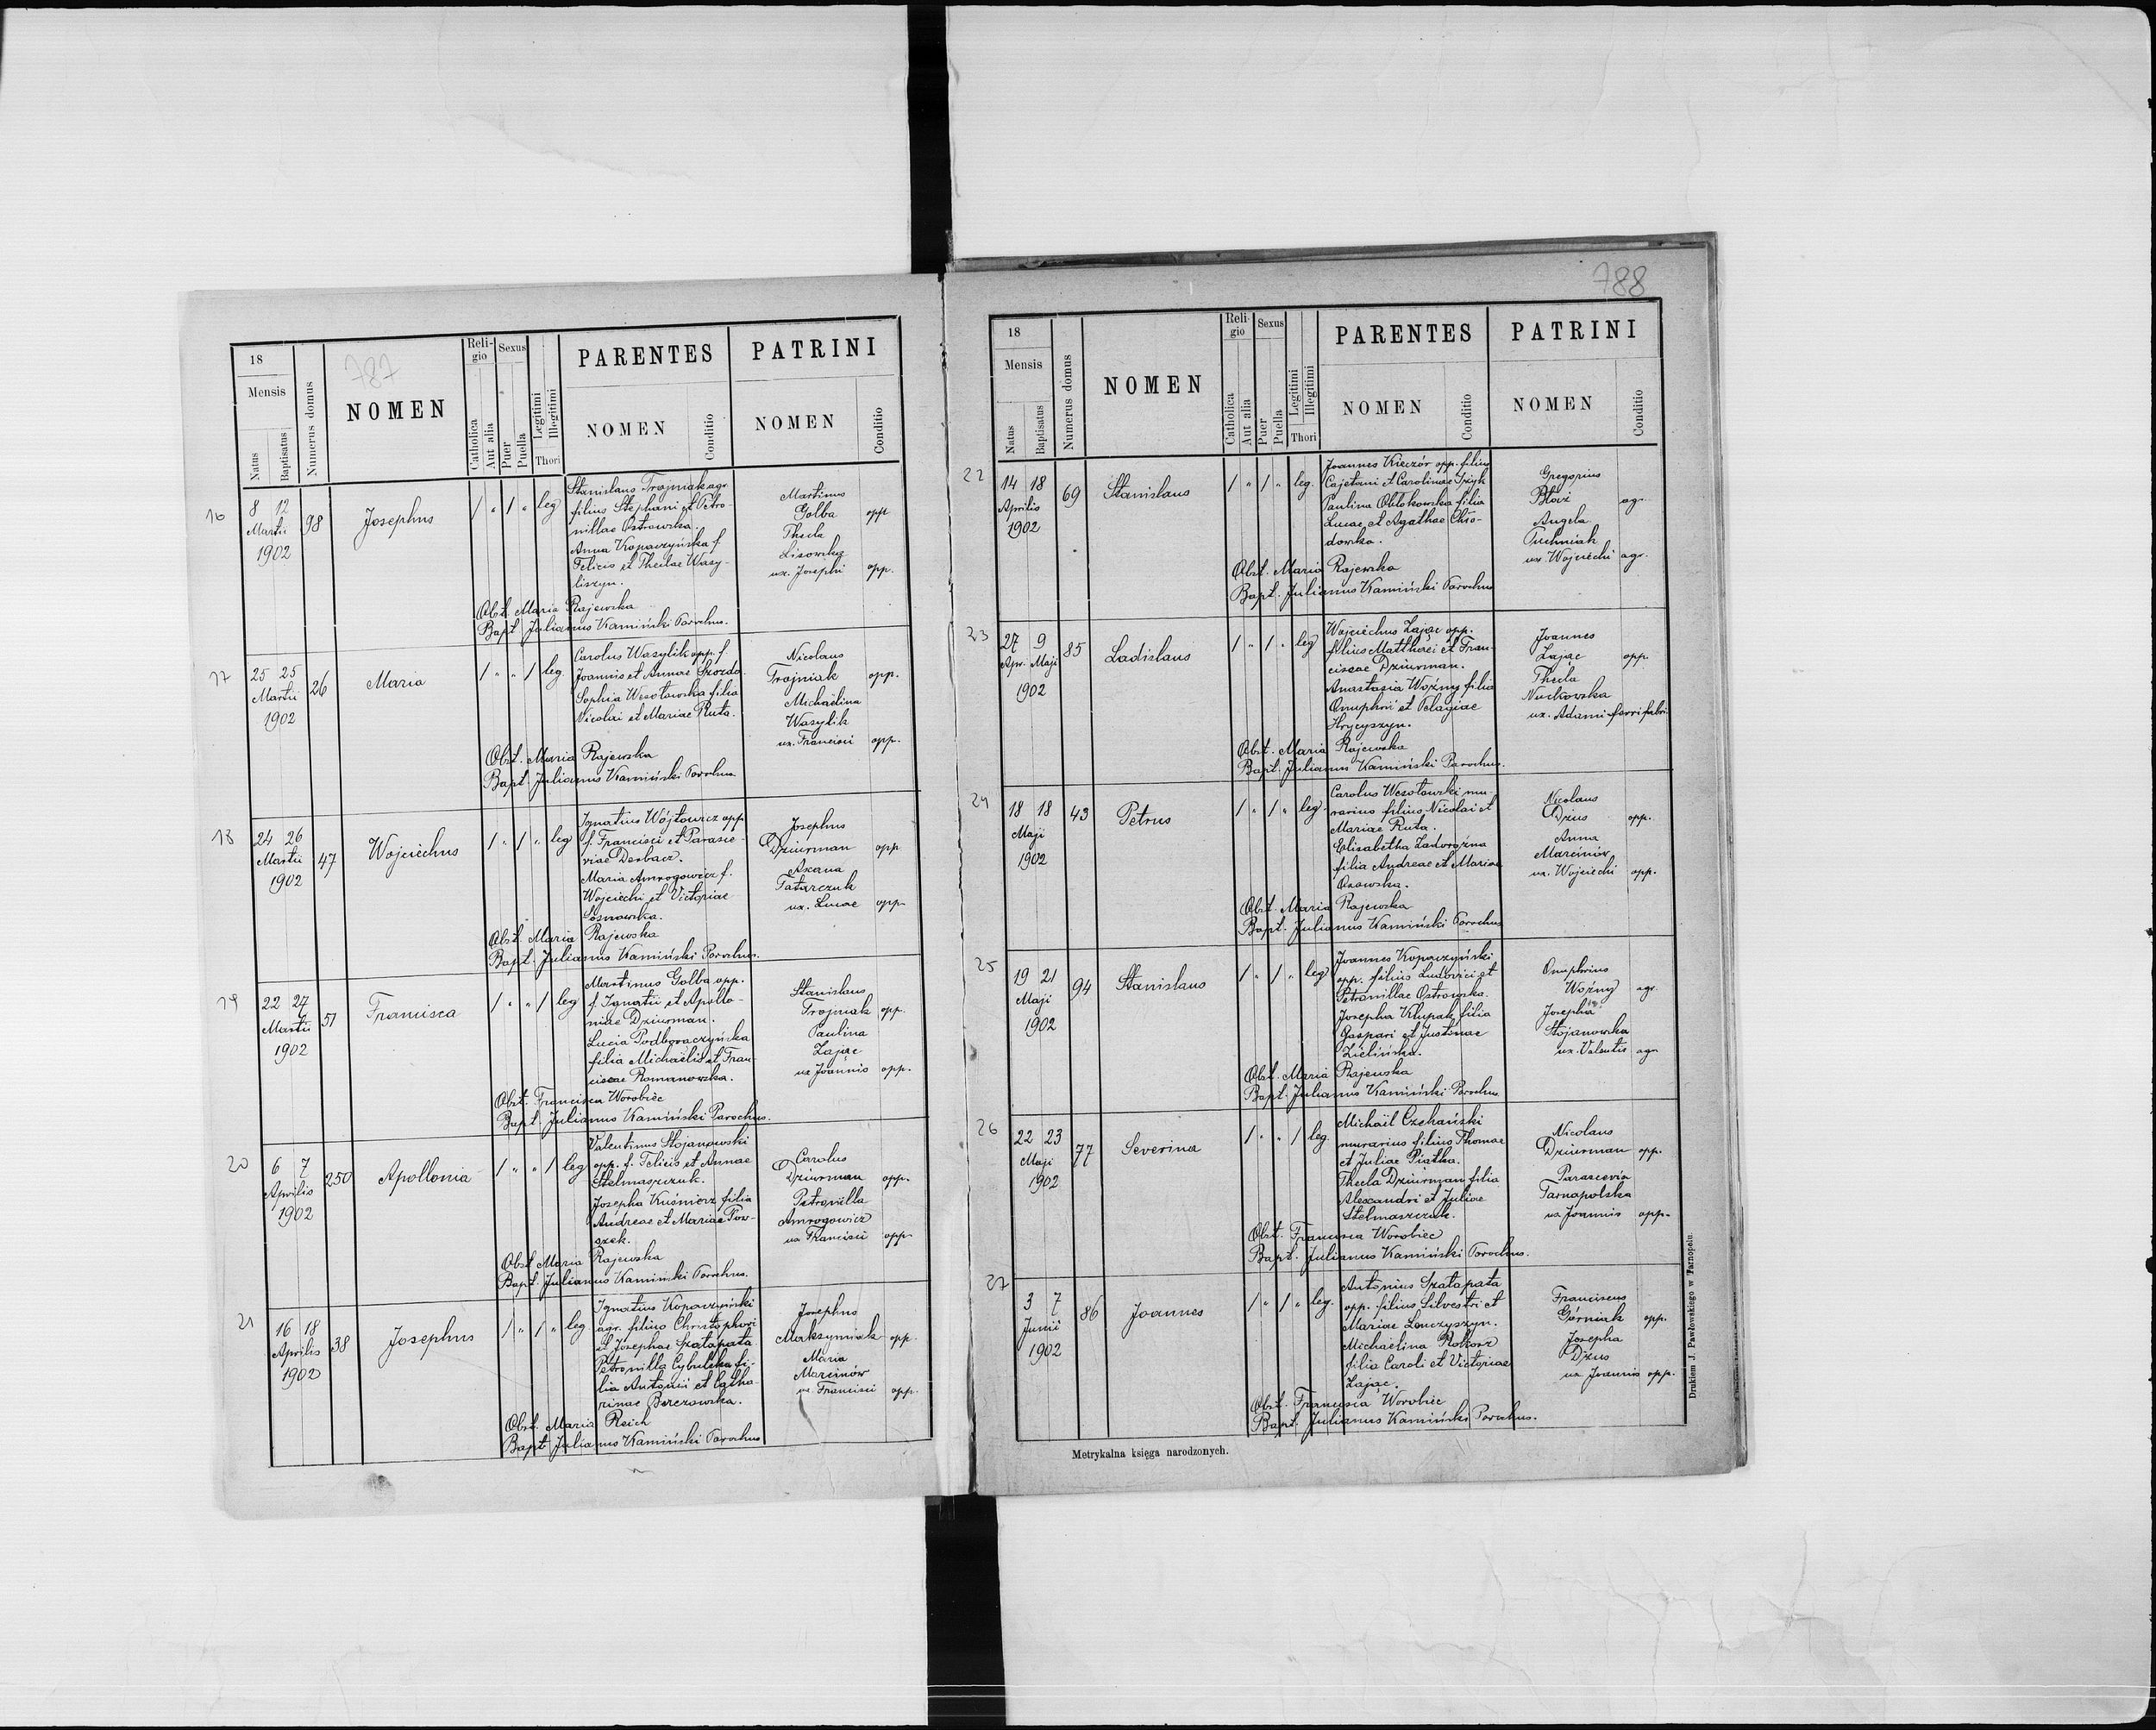 787
18
Mensis
Natus
Baptisatus
Numerus domus
NOMEN
Reli-
gio
Catholica
Aut alia
Sexus
Puer
Puella
Legitimi
Illegitimi
Thori
PARENTES
NOMEN
Conditio
PATRINI
NOMEN
Conditio
16
8 12
Martii
1902
98
Josephus
/ " / " leg
Stanislaus Trojniak agr
filius Stephani et Petro-
nillae Ostrowska.
Anna Kopaczyńska f.
Felicis et Theclae Wasy-
liszyn.
Martinus
Golba opp
Thecla
Lisowska
ux. Josephi opp.
Obst. Maria Rajewska
Bapt. Julianus Kamiński Parochus.
17
25 25
Martii
1902
26
Maria
/ " " / leg.
Carolus Wasylik opp. f.
Joannis et Annae
Sophia Wesołowska filia
Nicolai et Mariae Ruta.
Nicolaus
Trojniak opp.
Michaëlina
Wasylik
ux. Francisci opp.
Obst. Maria Rajewska
Bapt. Julianus Kamiński Parochus
18
24 26
Martii
1902
47
Wojciechus
/ " / " leg
Ignatius Wójtowicz opp
f. Francisci et Parasce-
viae Derbacz.
Maria Amrogowicz f.
Wojciechi et Victoriae
Sosnowska.
Josephus
Dziurman opp
Axana
Tatarczuk
ux. Lucae opp.
Obst. Maria Rajewska
Bapt. Julianus Kamiński Parochus.
19
22 27
Martii
1902
51
Francisca
/ " " / leg
Martinus Golba opp.
f. Ignatii et Apollo-
niae Dziurman.
Lucia Podhoraczyńska
filia Michaëlis et Fran-
ciscae Romanowska.
Stanislaus
Trojniak opp.
Paulina
Zając
ux Joannis opp.
Obst. Francisca Worobiec
Bapt. Julianus Kamiński Parochus.
20
6 7
Aprilis
1902
250
Apollonia
/ " " / leg
Valentinus Stojanowski
opp. f. Felicis et Annae
Stelmaszczuk.
Josepha Kuśnierz filia
Andreae et Mariae Pow-
szek.
Carolus
Dziurman opp.
Petronilla
Amrogowicz
ux Francisci opp.
Obst Maria Rajewska
Bapt. Julianus Kamiński Parochus.
21
16 18
Aprilis
1902
38
Josephus
/ " / " leg
Ignatius Kopaczyński
agr. filius Christophori
et Josephae Szatapata
Petronilla Cybulska fi-
lia Antonii et Catha-
rinae Berezowska.
Josephus
Maksymiak opp.
Maria
Marcinów
ux. Francisci opp.
Obst. Maria Reich
Bapt. Julianus Kamiński Parochus
788
18
Mensis
Natus
Baptisatus
Numerus domus
NOMEN
Reli-
gio
Catholica
Aut alia
Sexus
Puer
Puella
Legitimi
Illegitimi
Thori
PARENTES
NOMEN
Conditio
PATRINI
NOMEN
Conditio
22
14 18
Aprilis
1902
69
Stanislaus
/ " / " leg.
Joannes Kieczór opp. filius
Cajetani et Carolinae Szyk
Paulina Obłokowska filia
Lucae et Agathae Cho-
dowska.
Gregorius
agr.
Angela
Tuchniak
ux. Wojciechi agr.
Obst. Maria Rajewska
Bapt. Julianus Kamiński Parochus
23
27 9
Apr. Maji
1902
85
Ladislaus
/ " / " leg
Wojciechus Zając opp.
filius Matthaei et Fran-
ciscae Dziurman.
Anastasia Woźny filia
Onuphrii et Pelagiae
Hrycyszyn.
Joannes
Zając opp.
Thecla
Nuckowska
ux. Adami ferri fabri
Obst. Maria Rajewska
Bapt. Julianus Kamiński Parochus.
24
18 18
Maji
1902
43
Petrus
/ " / " leg.
Carolus Wesołowski mu-
rarius filius Nicolai et
Mariae Ruta.
Elisabetha Zadorożna
filia Andreae et Mariae
Osowska.
Nicolaus
Dzus opp.
Anna
Marcinów
ux. Wojciechi opp.
Obst. Maria Rajewska
Bapt. Julianus Kamiński Parochus
25
19 21
Maji
1902
94
Stanislaus
/ " / " leg
Joannes Kopaczyński
opp. filius Ludovici et
Petronillae Ostrowska.
Josepha Klupak filia
Gaspari et Justinae
Zielińska.
Onuphrius
Woźny agr.
Josepha
Stojanowska
ux. Valentis agr
Obst. Maria Rajewska
Bapt. Julianus Kamiński Parochus
26
22 23
Maji
1902
77
Severina
/ " " / leg.
Michaël Czehański
murarius filius Thomae
et Juliae Piatka.
Thecla Dziurman filia
Alexandri et Juliae
Stelmaszczuk.
Nicolaus
Dziurman opp.
Parascevia
Tarnapolska
ux. Joannis opp.
Obst. Francisca Worobiec
Bapt. Julianus Kamiński Parochus.
27
3 7
Junii
1902
86
Joannes
/ " / " leg.
Antonius Szatapata
opp. filius Silvestri et
Mariae Lenczyszyn.
Michaëlina Rokosz
filia Caroli et Victoriae
Zając.
Franciscus
Górniak opp.
Josepha
Dzus
ux. Joannis opp.
Obst. Francisca Worobiec
Bapt. Julianus Kamiński Parochus.
Metrykalna księga narodzonych.
Drukiem J. Pawłowskiego w Tarnopolu.